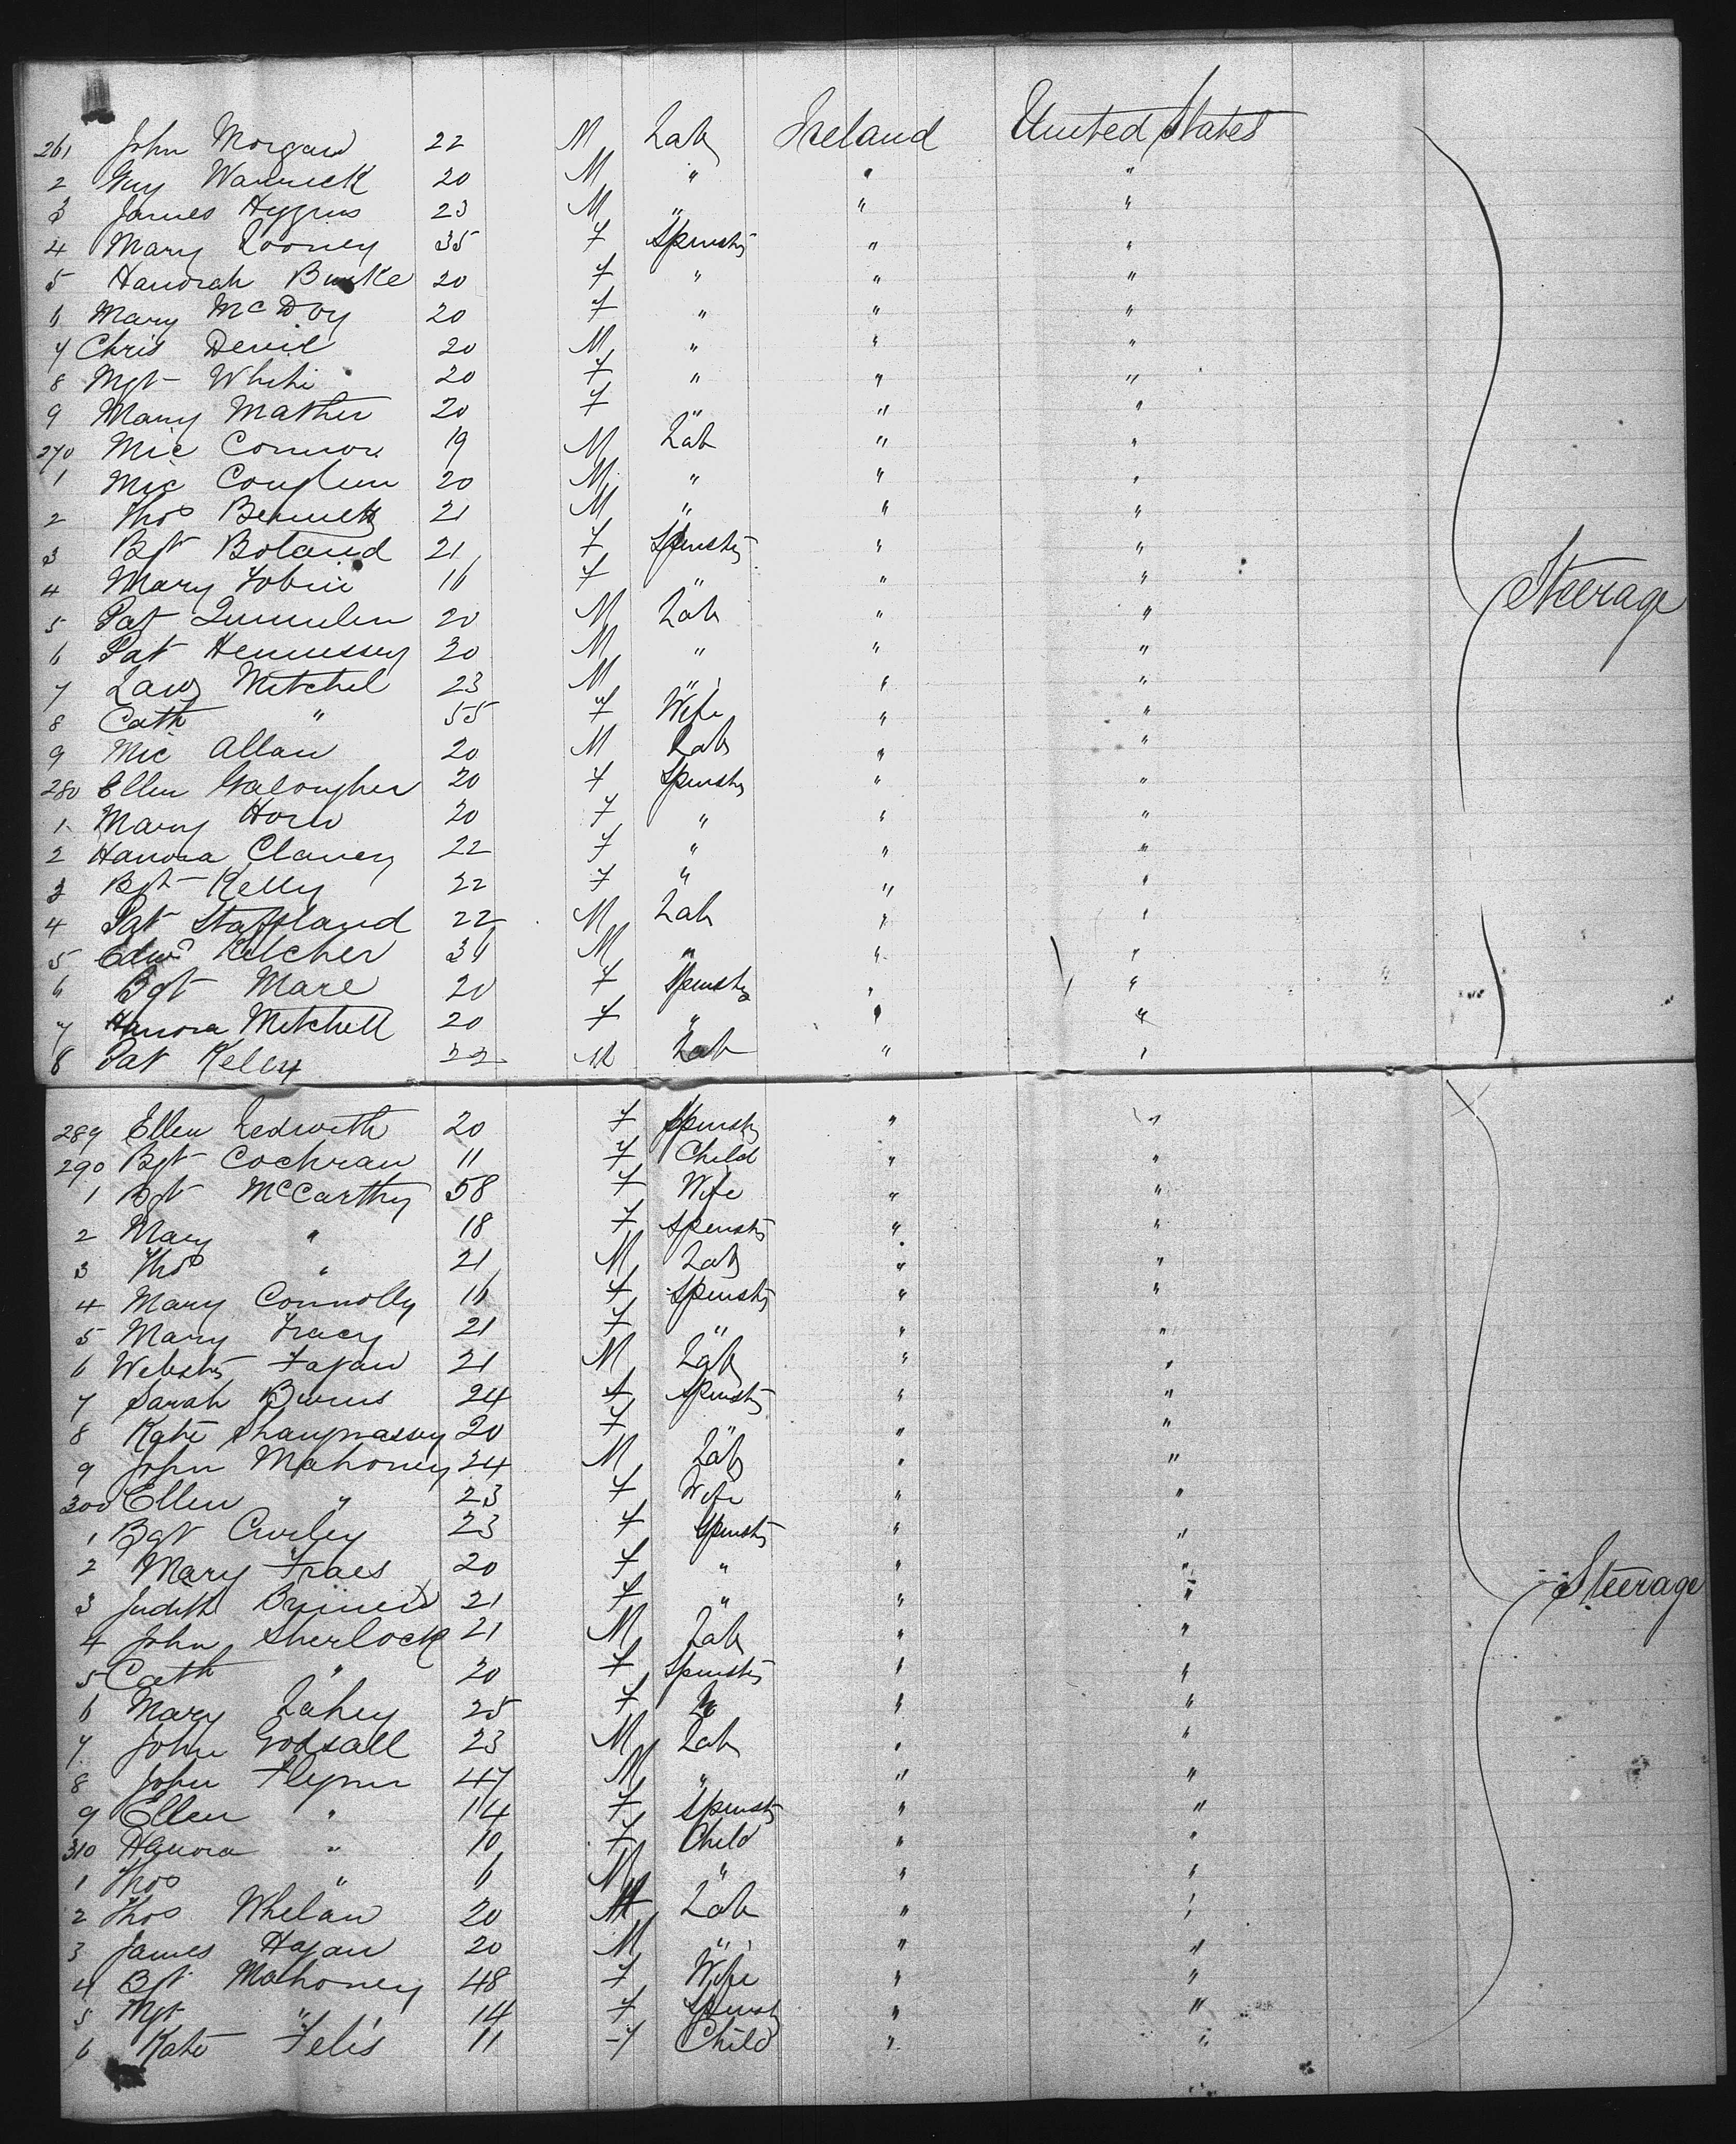 261 John Morgan 22 M Lab Ireland United States
2 Guy Warnick 20 M " " "
3 James Hygins 23 M " " "
4 Mary Looney 35 F Spinstr " "
5 Hanorah Burke 20 F " " "
6 Mary McDoy 20 F " " "
7 Chris Devil 20 M " " "
8 Mgt White 20 F " " "
9 Mary Mather 20 F " " "
270 Mic Connor 19 M Lab " "
1 Mic Couglin 20 M " " "
2 Thos Bennett 21 M " " "
3 Bgt Boland 21 F Spinstr " "
4 Mary Tobin 16 F " " "
Steerage
5 Pat Quinulen 20 M Lab " "
6 Pat Hennessey 20 M " " "
7 Law Mitchel 23 M " " "
8 Cath " 55 F Wife " "
9 Mic Allan 20 M Lab " "
280 Ellen Galougher 20 F Spinstr " "
1 Mary Horn 20 F " " "
2 Hanora Clancy 22 F " " "
3 Bgt Kelly 22 F " " "
4 Pat Staffland 22 M Lab " "
5 Edwd Kelcher 36 M " " "
6 Bgt Mare 20 F Spinstr " "
7 Hanora Mitchell 20 F " " "
8 Pat Kelly 22 M Lab " "
289 Ellen Ledwith 20 F Spinstr " "
290 Bgt Cochran 11 F Child " "
1 Bgt McCarthy 58 F Wife " "
2 Mary " 18 F Spinstr " "
3 Thos " 21 M Lab " "
4 Mary Connolly 16 F Spinstr " "
5 Mary Tracy 21 F " " "
6 Webster Fagan 21 M Lab " "
7 Sarah Burns 24 F Spinstr " "
8 Kate Shaugnassey 20 F " " "
9 John Mahoney 24 M Lab " "
300 Ellen " 23 F Wife " "
1 Bgt Curley 23 F Spinstr " "
2 Mary Fraes 20 F " " "
3 Judith 21 F " " "
Steerage
4 John Sherlock 21 M Lab " "
5 Cath " 20 F Spinstr " "
6 Mary Lahey 25 F " "
7 John Godsall 23 M Lab " "
8 John Flynn 47 M " " "
9 Ellen " 14 F Spinstr " "
310 Hanora " 10 F Child " "
1 Thos " 6 M " " "
2 Thos Whelan 20 M Lab " "
3 James Hagan 20 M " " "
4 Bgt Mahoney 48 F Wife " "
5 Mgt " 14 F Spinstr " "
6 Kate Felis 11 F Child " "